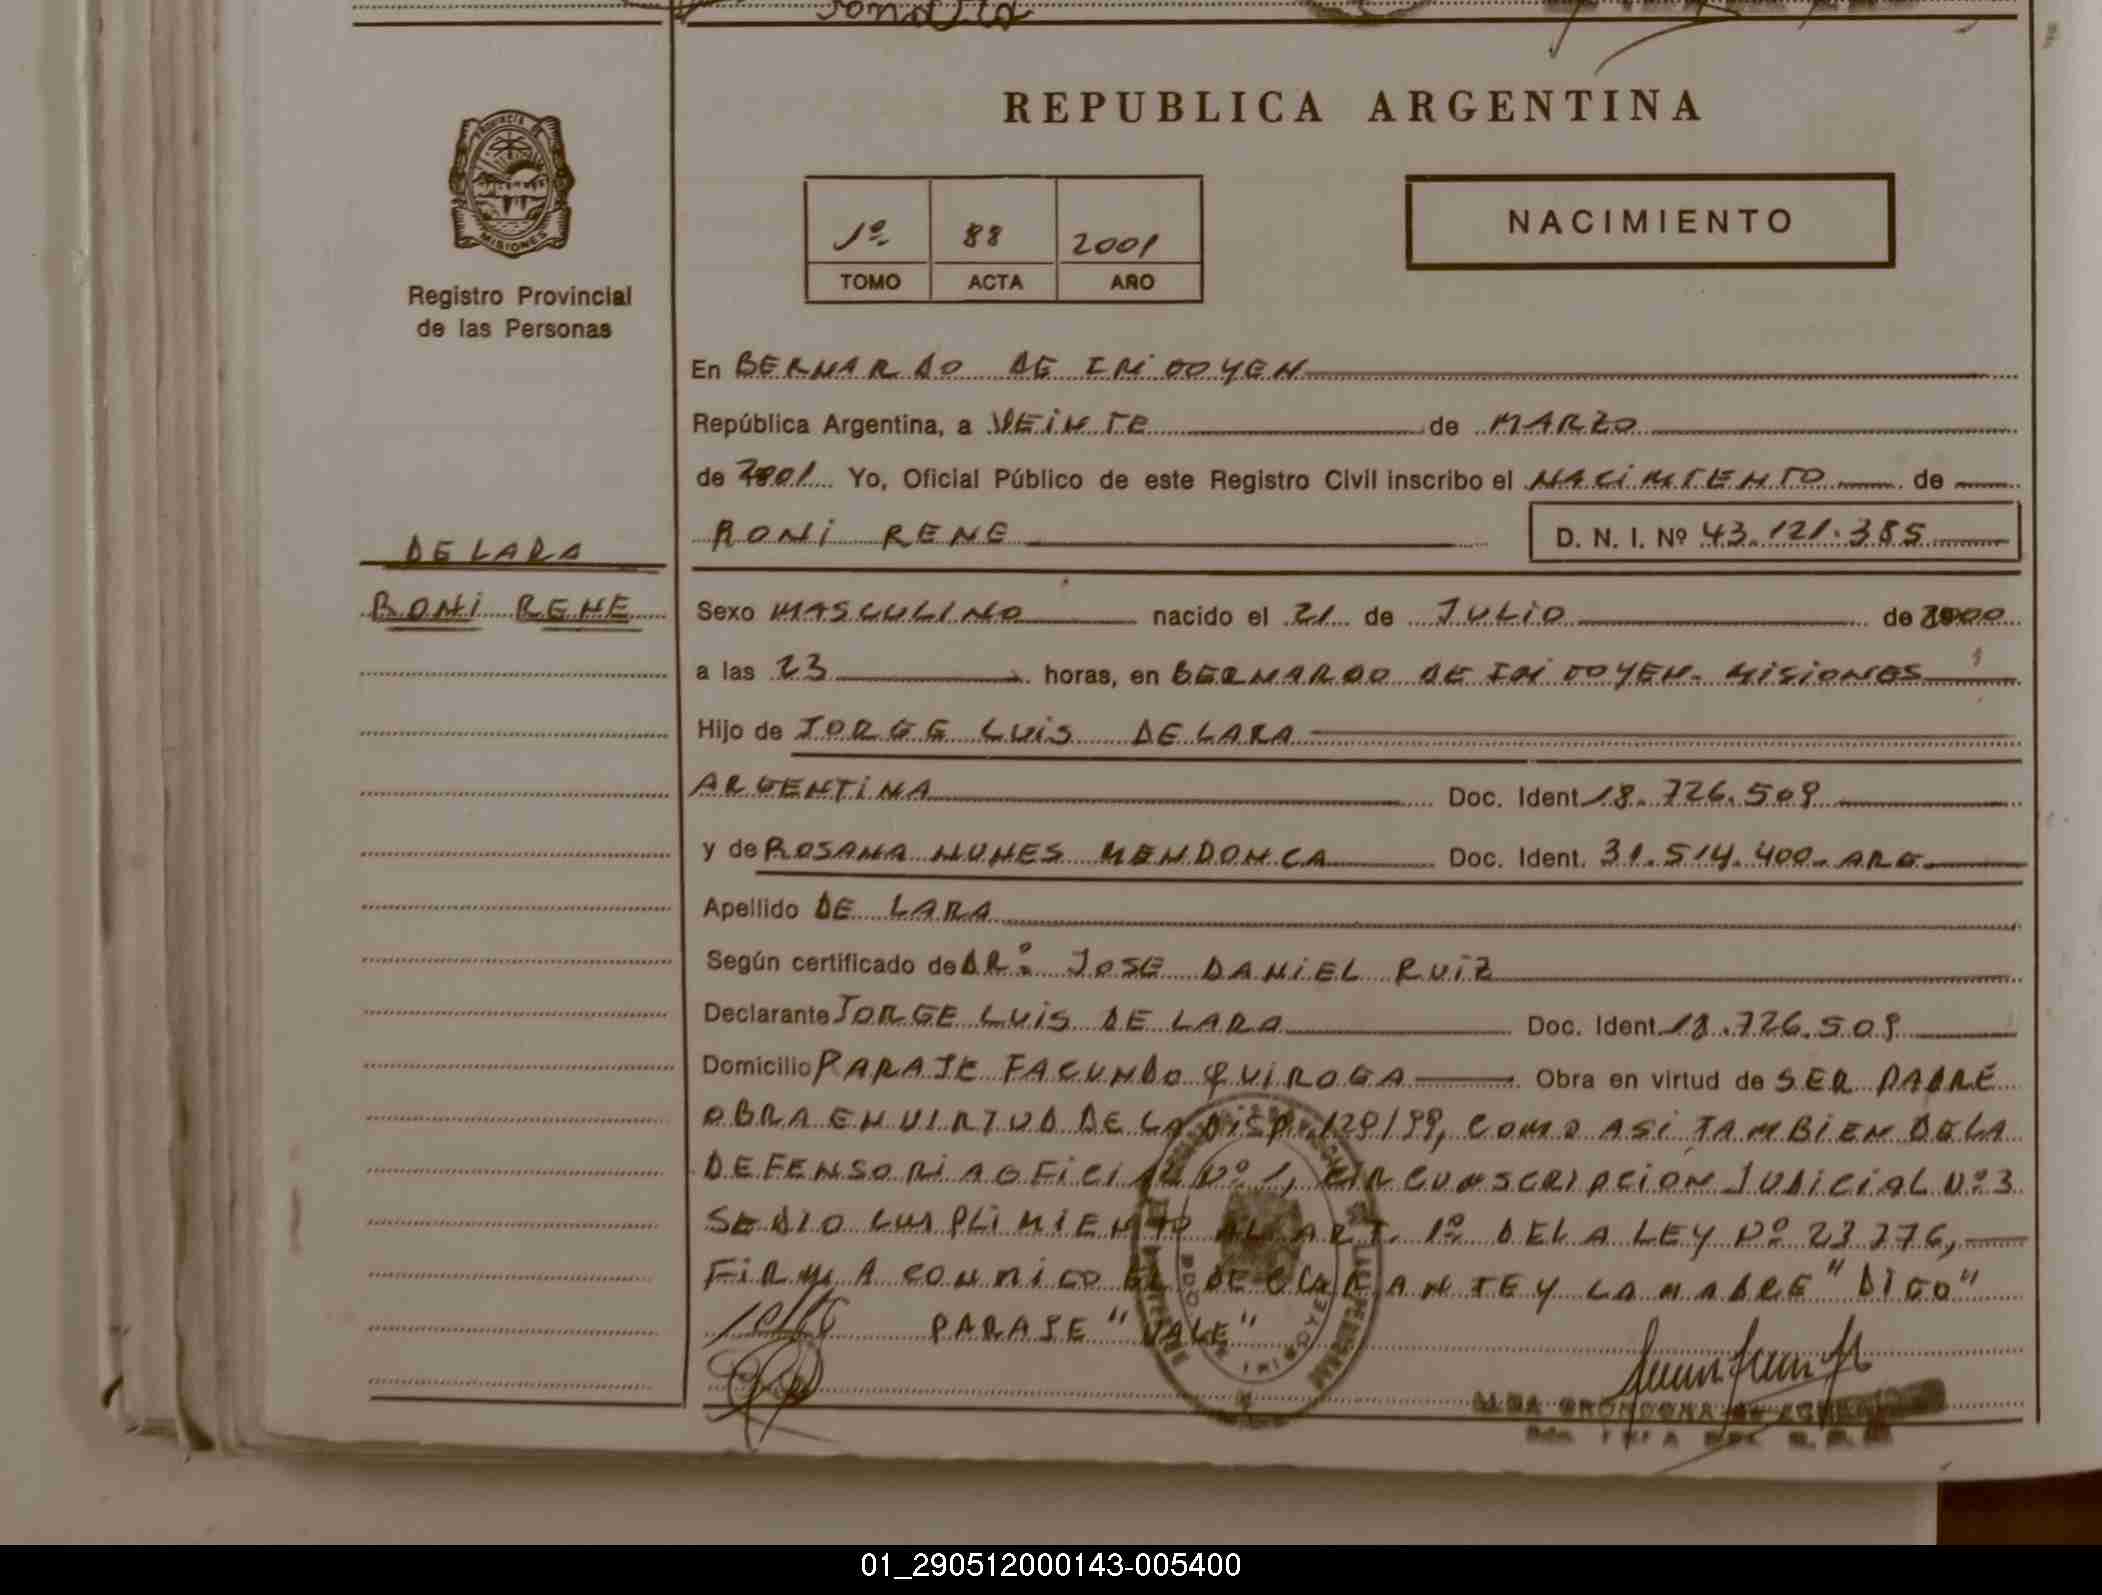 PROVINCIA DE
MISIONES
Registro Provincial
de las Personas
REPUBLICA ARGENTINA
1º 88 2001
TOMO ACTA AÑO
NACIMIENTO
En BERNARDO DE IRIGOYEN
República Argentina, a VEINTE de MARZO
de 2001 Yo, Oficial Público de este Registro Civil inscribo el NACIMIENTO de
RONI RENE D. N. I. Nº 43.121.385
DE LARA
RONI RENE
Sexo MASCULINO nacido el 21 de JULIO de 2000
a las 23 horas, en BERNARDO DE IRIGOYEN. MISIONES
Hijo de JORGE LUIS DE LARA
ARGENTINA Doc. Ident. 18.726.509
y de ROSANA NUNES MENDONCA Doc. Ident. 31.514.400. ARG.
Apellido DE LARA
Según certificado de DR: JOSE DANIEL RUIZ
Declarante JORGE LUIS DE LARA Doc. Ident. 18.726.509
Domicilio PARAJE FACUNDO QUIROGA Obra en virtud de SER PADRE
OBRA EN VIRTUD DE LA DISP. 129/99, COMO ASI TAMBIEN DE LA
DEFENSORIA OFICIAL Nº 1, CIRCUNSCRIPCION JUDICIAL Nº 3
SE DIO CUMPLIMIENTO AL ART. 1º DE LA LEY Nº 23776,
FIRMA CONMIGO EL DECLARANTE Y LA MADRE "DIGO"
PARAJE "VALE"
01_290512000143-005400